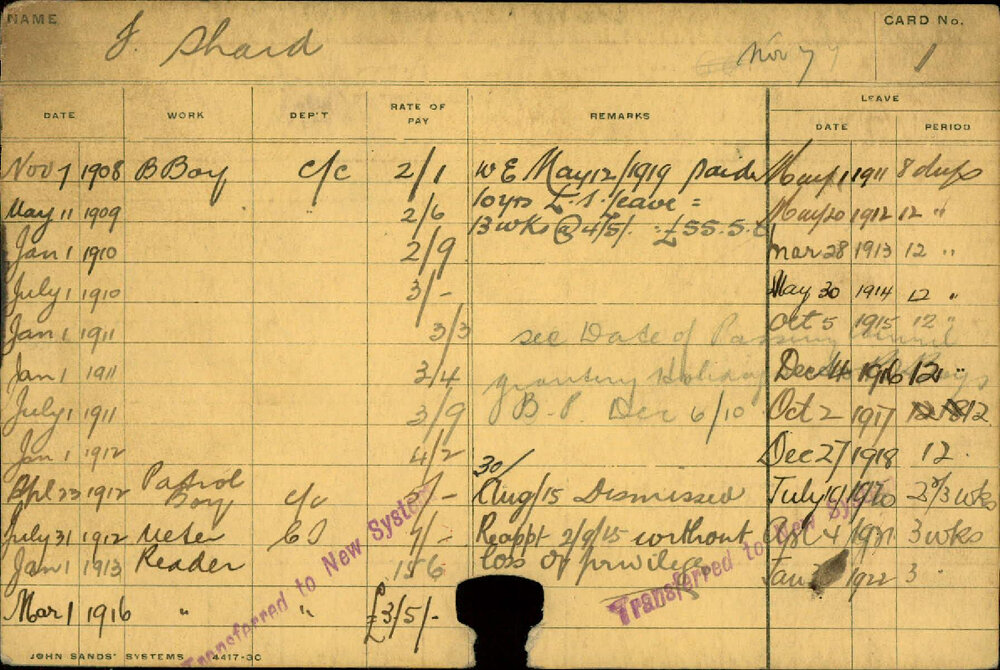 NAME J. Shard Nov 7 CARD No. 1
DATE WORK DEP'T RATE OF PAY REMARKS LEAVE
DATE PERIOD
Nov 7 1908 B Boy c/c 2/1
May 11 1909 " 2/6
Jan 1 1910 2/9
July 1 1910 3/-
Jan 1 1911 3/3
Jan 1 1911 3/4
July 1 1911 3/9
Jan 1 1912 4/2
Apl 23 1912 Patrol Boy c/c 5/-
July 31 1912 Meter 7/-
Jan 1 1913 Reader 15 6
Mar 1 1916 " " £3/5/-
W E May 12/1919 paid
10 yrs L.S. leave =
13 wks @ 4/5/. = £55.5.
see Date of Passing Council
granting Holiday Boys
B.P. Dec 6/10
30/
Aug/15 Dismissed
Reappt 2/9/15 without
loss of privilege
May 1 1911 8 days
May 20 1912 12 "
Mar 28 1913 12 "
May 30 1914 12 "
Oct 5 1915 12 "
Dec 4 1916 12 "
Oct 2 1917 12
Dec 27 1918 12
July 19 1920 2 2/3 wks
4 1921 3 wks
Jan 1922 3 "
Transferred to New System
Transferred to New System
JOHN SANDS' SYSTEMS 4417-3C